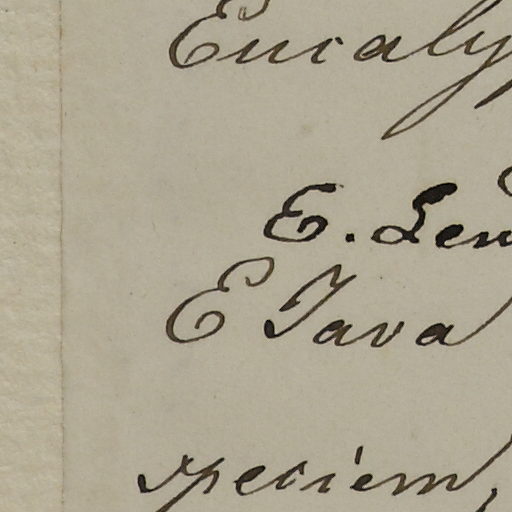 Eucaly
E. Leu
E Java
speciem,